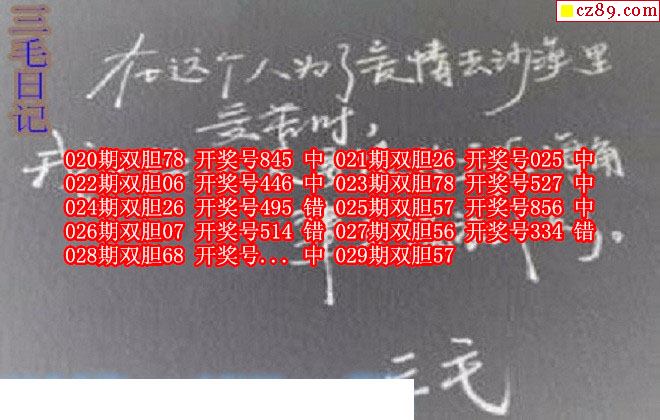 cz89.com
三毛日记
在这个人为了爱情去沙漠里
受苦时,
我
角
020期双胆78 开奖号845 中 021期双胆26 开奖号025 中
022期双胆06 开奖号446 中 023期双胆78 开奖号527 中
024期双胆26 开奖号495 错 025期双胆57 开奖号856 中
026期双胆07 开奖号514 错 027期双胆56 开奖号334 错
028期双胆68 开奖号... 中 029期双胆57
三毛